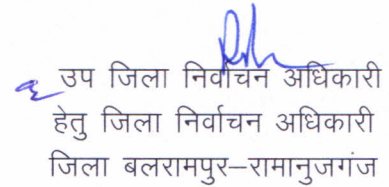 उप जिला निर्वाचन अधिकारी
हेतु जिला निर्वाचन अधिकारी
जिला बलरामपुर–रामानुजगंज